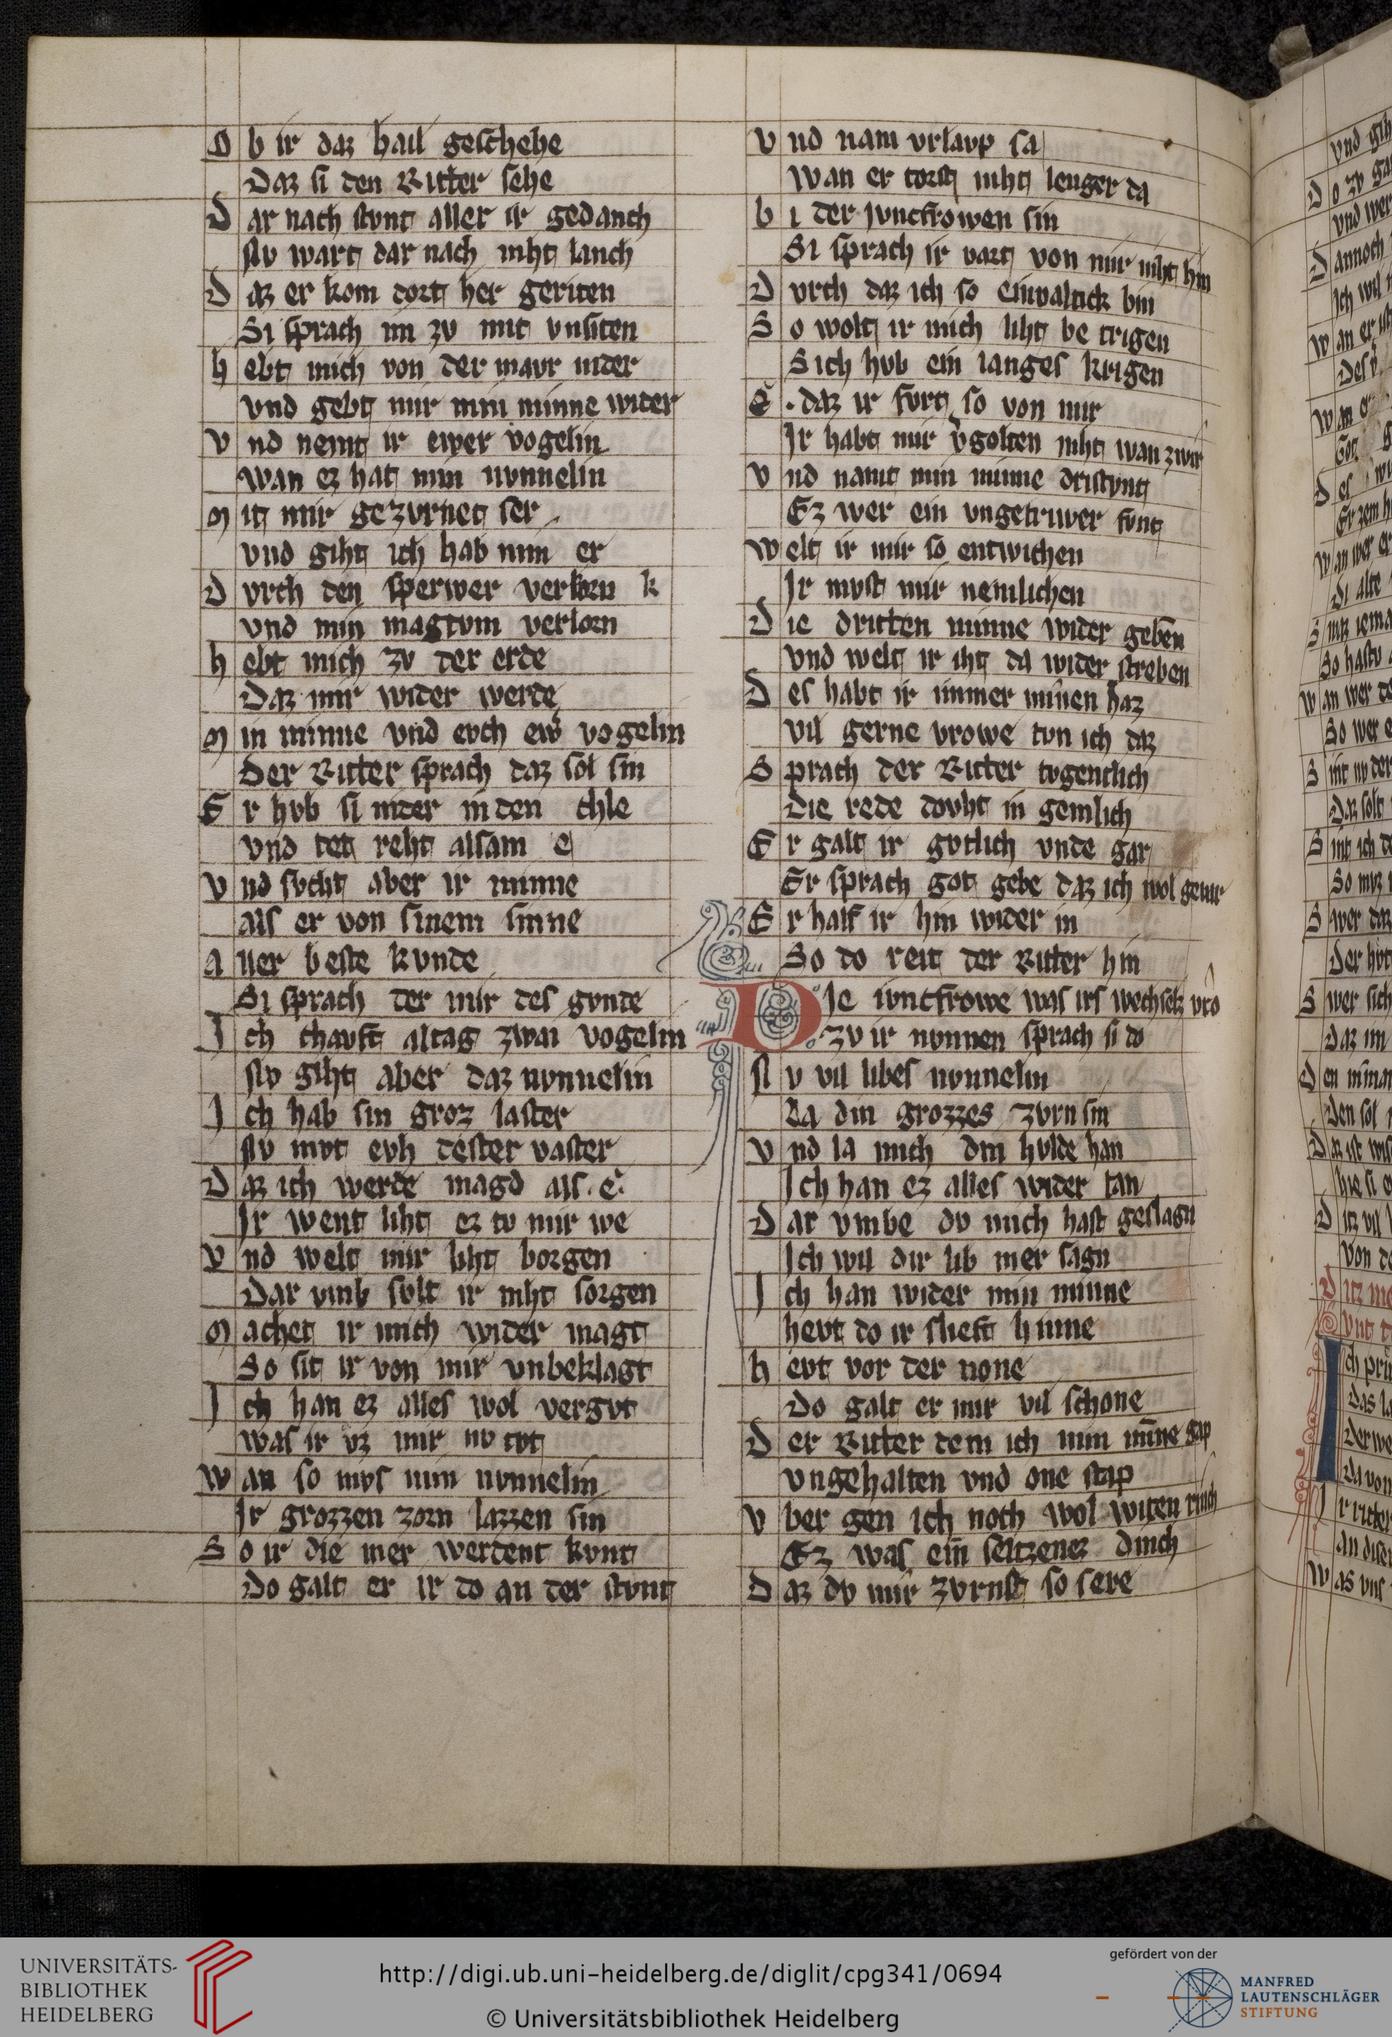 Ob ir daz hail geschehe
Daz si den Ritter sehe
Dar nach stvnt aller ir gedanch
Nv wart dar nach niht lanch
Daz er kom dort her geriten
Si sprach im zv mit vnsiten
hebt mich von der mavr nider
vnd gebt mir min minne wider
vnd nemt ir ewer vogelin
wan ez hat min nvnnelin
Mit mir gezvrnet ser
vnd giht ich hab min er
Dvrch den sperwer verkorn k
vnd min magtvm verlorn
hebt mich zv der erde
Daz mir wider werde
Min minne vnd evch ew̃ vogelin
Der Ritter sprach daz sol sin
Er hvb si nider in den chle
vnd tet reht alsam e
Vnd svcht aber ir minne
als er von sinem sinne
Aller beste kvnde
Si sprach der mir des gvnde
Ich chavft altag zwai vogelin
Nv giht aber daz nvnnelin
Ich hab sin groz laster
Nv mvt evh dester vaster
Daz ich werde magd als e
Ir went liht ez tv mir we
Vnd welt mir liht borgen
Dar vmb svlt ir niht sorgen
Machet ir mich wider magt
So sit ir von mir vnbeklagt
Ich han ez alles wol vergvt
was ir vz mir nv tvt
Wan so mvs min nvnnelin
Ir grozzen zorn lazzen sin
So ir die mer werdent kvnt
Do galt er ir do an der stvnt
Vnd nam vrlavp sa
wan er torst niht lenger da
bi der ivncfrowen sin
Si sprach ir vart von mir niht hin
Dvrch daz ich so einvaltick bin
So wolt ir mich liht be trigen
Sich hvb ein langes krigen
E. daz ir fvrt so von mir
Ir habt mir v̉golten niht wan zwir
Vnd namt min minne dristvnt
Ez wer ein vngetriwer fvnt
Welt ir mir so entwichen
Ir mvst mir nemlichen
Die dritten minne wider geben
vnd welt ir iht da wider streben
Des habt ir immer minen haz
vil gerne vrowe tvn ich daz
Sprach der Ritter tvgentlich
die rede dovht in gemlich
Er galt ir gvtlich vnde gar
Er sprach got gebe daz ich wol gevar
Er half ir hin wider in
So do reit der Ritter hin
Die ivncfrowe was irs wechsels vro
zv ir nvnnen sprach si do
Nv vil libes nvnnelin
La din grozzes zvrn sin
Vnd la mich din hvlde han
Ich han ez alles wider tan
Dar vmbe dv mich hast geslagn
Ich wil dir lib mer sagn
Ich han wider min minne
hevt do ir slieft hinne
hevt vor der none
Do galt er mir vil schone
Der Ritter dem ich min m̄ne gap
vngehalten vnd one stap
Vber gen ich noch wol witen rinch
Ez was ein seltzenez dinch
Daz dv mir zvrnst so sere
UNIVERSITÄTS-
BIBLIOTHEK
HEIDELBERG
http://digi.ub.uni-heidelberg.de/diglit/cpg341/0694
© Universitätsbibliothek Heidelberg
gefördert von der
MANFRED
LAUTENSCHLÄGER
STIFTUNG